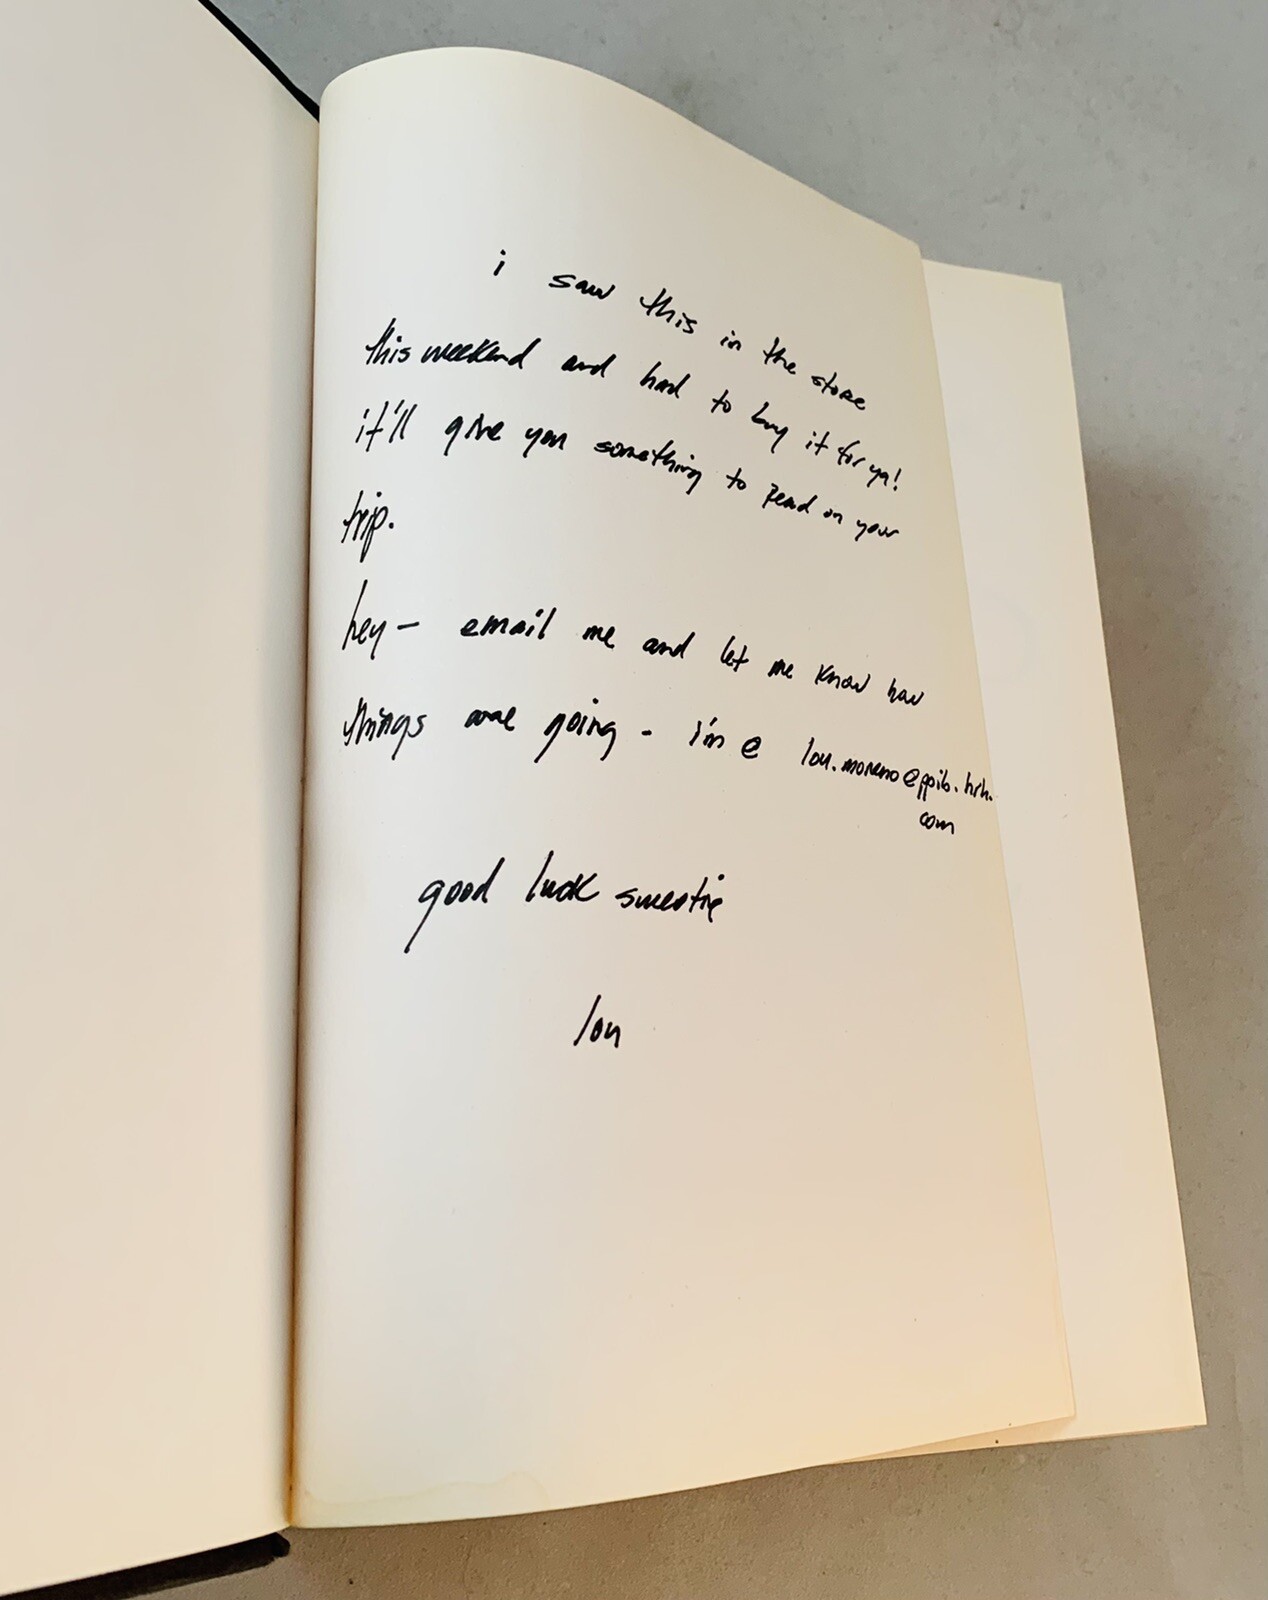 i saw this in the store
this weekend and had to buy it for ya!
it'll give you something to read on your
trip.
hey - email me and let me know how
things are going - i'm @ lou.moreno@ppib.hrh.
com
good luck sweetie
lou